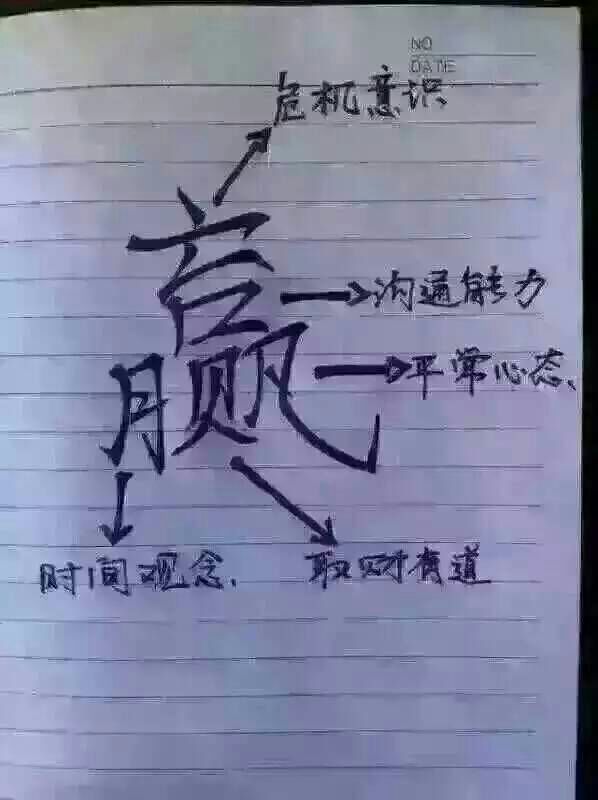 NO
DATE
危机意识
赢
沟通能力
平常心态、
时间观念、
取财有道